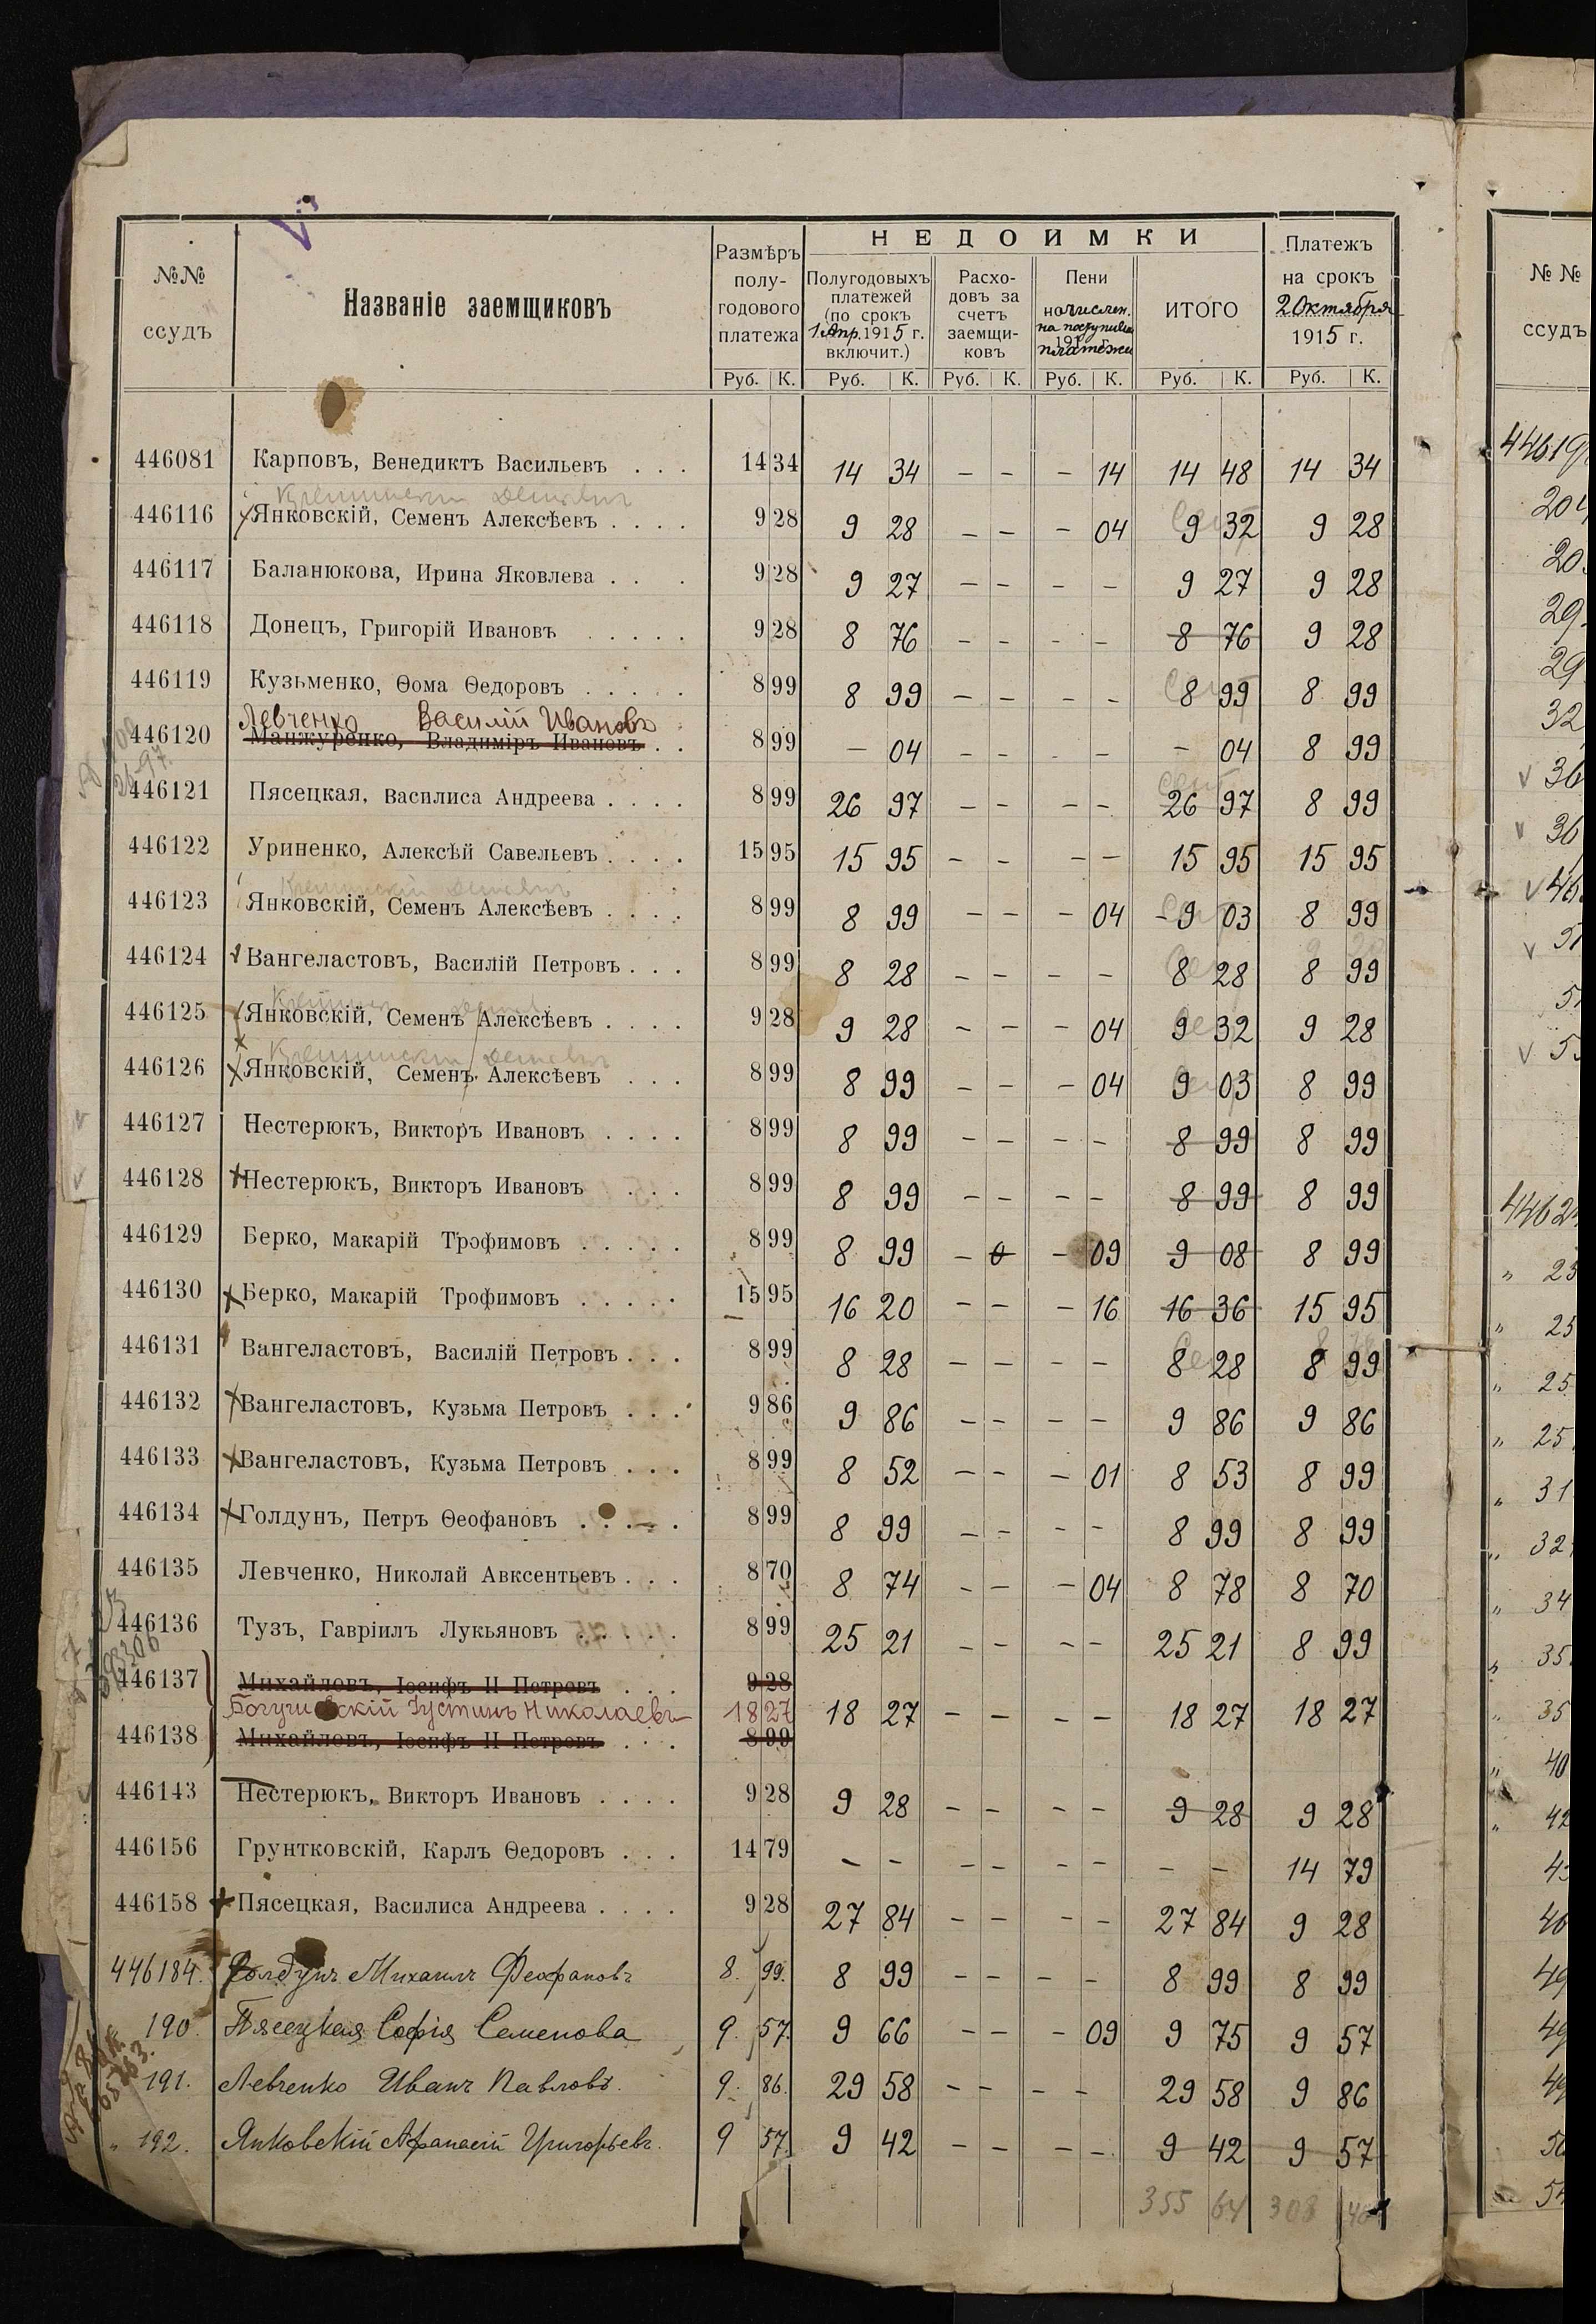 №№ ссудъ | Названіе заемщиковъ | Размѣръ полугодового платежа | НЕДОИМКИ | Платежъ на срокъ 2 Октября 1915 г. | № № ссудъ
Полугодовыхъ платежей (по срокъ 1 Апр. 1915 г. включит.) | Расходовъ за счетъ заемщиковъ | Пени начислен. на поступивш. 191 платежи | ИТОГО
Руб. | К. | Руб. | К. | Руб. | К. | Руб. | К. | Руб. | К. | Руб. | К.
446081 Карповъ, Венедиктъ Васильевъ . . . 14 34 14 34 – – – 14 14 48 14 34
446116 Янковскій, Семенъ Алексѣевъ . . . . 9 28 9 28 – – – 04 9 32 9 28
446117 Баланюкова, Ирина Яковлева . . . 9 28 9 27 – – – – 9 27 9 28
446118 Донецъ, Григорій Ивановъ . . . . . 9 28 8 76 – – – – 8 76 9 28
446119 Кузьменко, Ѳома Ѳедоровъ . . . . . 8 99 8 99 – – – – 8 99 8 99
Левченко Василій Ивановъ
446120 Манжуренко, Владиміръ Ивановъ . . 8 99 – 04 – – – – – 04 8 99
446121 Пясецкая, Василиса Андреева . . . . 8 99 26 97 – – – – 26 97 8 99
446122 Уриненко, Алексѣй Савельевъ . . . . 15 95 15 95 – – – – 15 95 15 95
446123 Янковскій, Семенъ Алексѣевъ . . . . 8 99 8 99 – – – 04 9 03 8 99
446124 Вангеластовъ, Василій Петровъ . . . 8 99 8 28 – – – – 8 28 8 99
446125 Янковскій, Семенъ Алексѣевъ . . . . 9 28 9 28 – – – 04 9 32 9 28
446126 Янковскій, Семенъ Алексѣевъ . . . 8 99 8 99 – – – 04 9 03 8 99
446127 Нестерюкъ, Викторъ Ивановъ . . . . 8 99 8 99 – – – – 8 99 8 99
446128 Нестерюкъ, Викторъ Ивановъ . . . 8 99 8 99 – – – – 8 99 8 99
446129 Берко, Макарій Трофимовъ . . . . . 8 99 8 99 – 0 – 09 9 08 8 99
446130 Берко, Макарій Трофимовъ . . . . . 15 95 16 20 – – – 16 16 36 15 95
446131 Вангеластовъ, Василій Петровъ . . . 8 99 8 28 – – – – 8 28 8 99
446132 Вангеластовъ, Кузьма Петровъ . . . 9 86 9 86 – – – – 9 86 9 86
446133 Вангеластовъ, Кузьма Петровъ . . . 8 99 8 52 – – – 01 8 53 8 99
446134 Голдунъ, Петръ Ѳеофановъ . . . . . 8 99 8 99 – – – – 8 99 8 99
446135 Левченко, Николай Авксентьевъ . . . 8 70 8 74 – – – 04 8 78 8 70
446136 Тузъ, Гавріилъ Лукьяновъ . . . . . 8 99 25 21 – – – – 25 21 8 99
446137 Михайловъ, Іосифъ II Петровъ . . . 9 28
18 27 18 27 – – – – 18 27 18 27
446138 Михайловъ, Іосифъ II Петровъ . . . 8 99
446143 Нестерюкъ, Викторъ Ивановъ . . . . 9 28 9 28 – – – – 9 28 9 28
446156 Грунтковскій, Карлъ Ѳедоровъ . . . 14 79 – – – – – – – – 14 79
446158 Пясецкая, Василиса Андреева . . . . 9 28 27 84 – – – – 27 84 9 28
446184. Голдунъ Михаилъ Феофановъ 8. 99. 8 99 – – – – 8 99 8 99
190. Пясецкая Софія Семенова 9. 57. 9 66 – – – 09 9 75 9 57
191. Левченко Иванъ Павловъ. 9. 86. 29 58 – – – – 29 58 9 86
" 192. Янковскій Афанасій Григорьевъ. 9 57. 9 42 – – – – 9 42 9 57
355 64 308